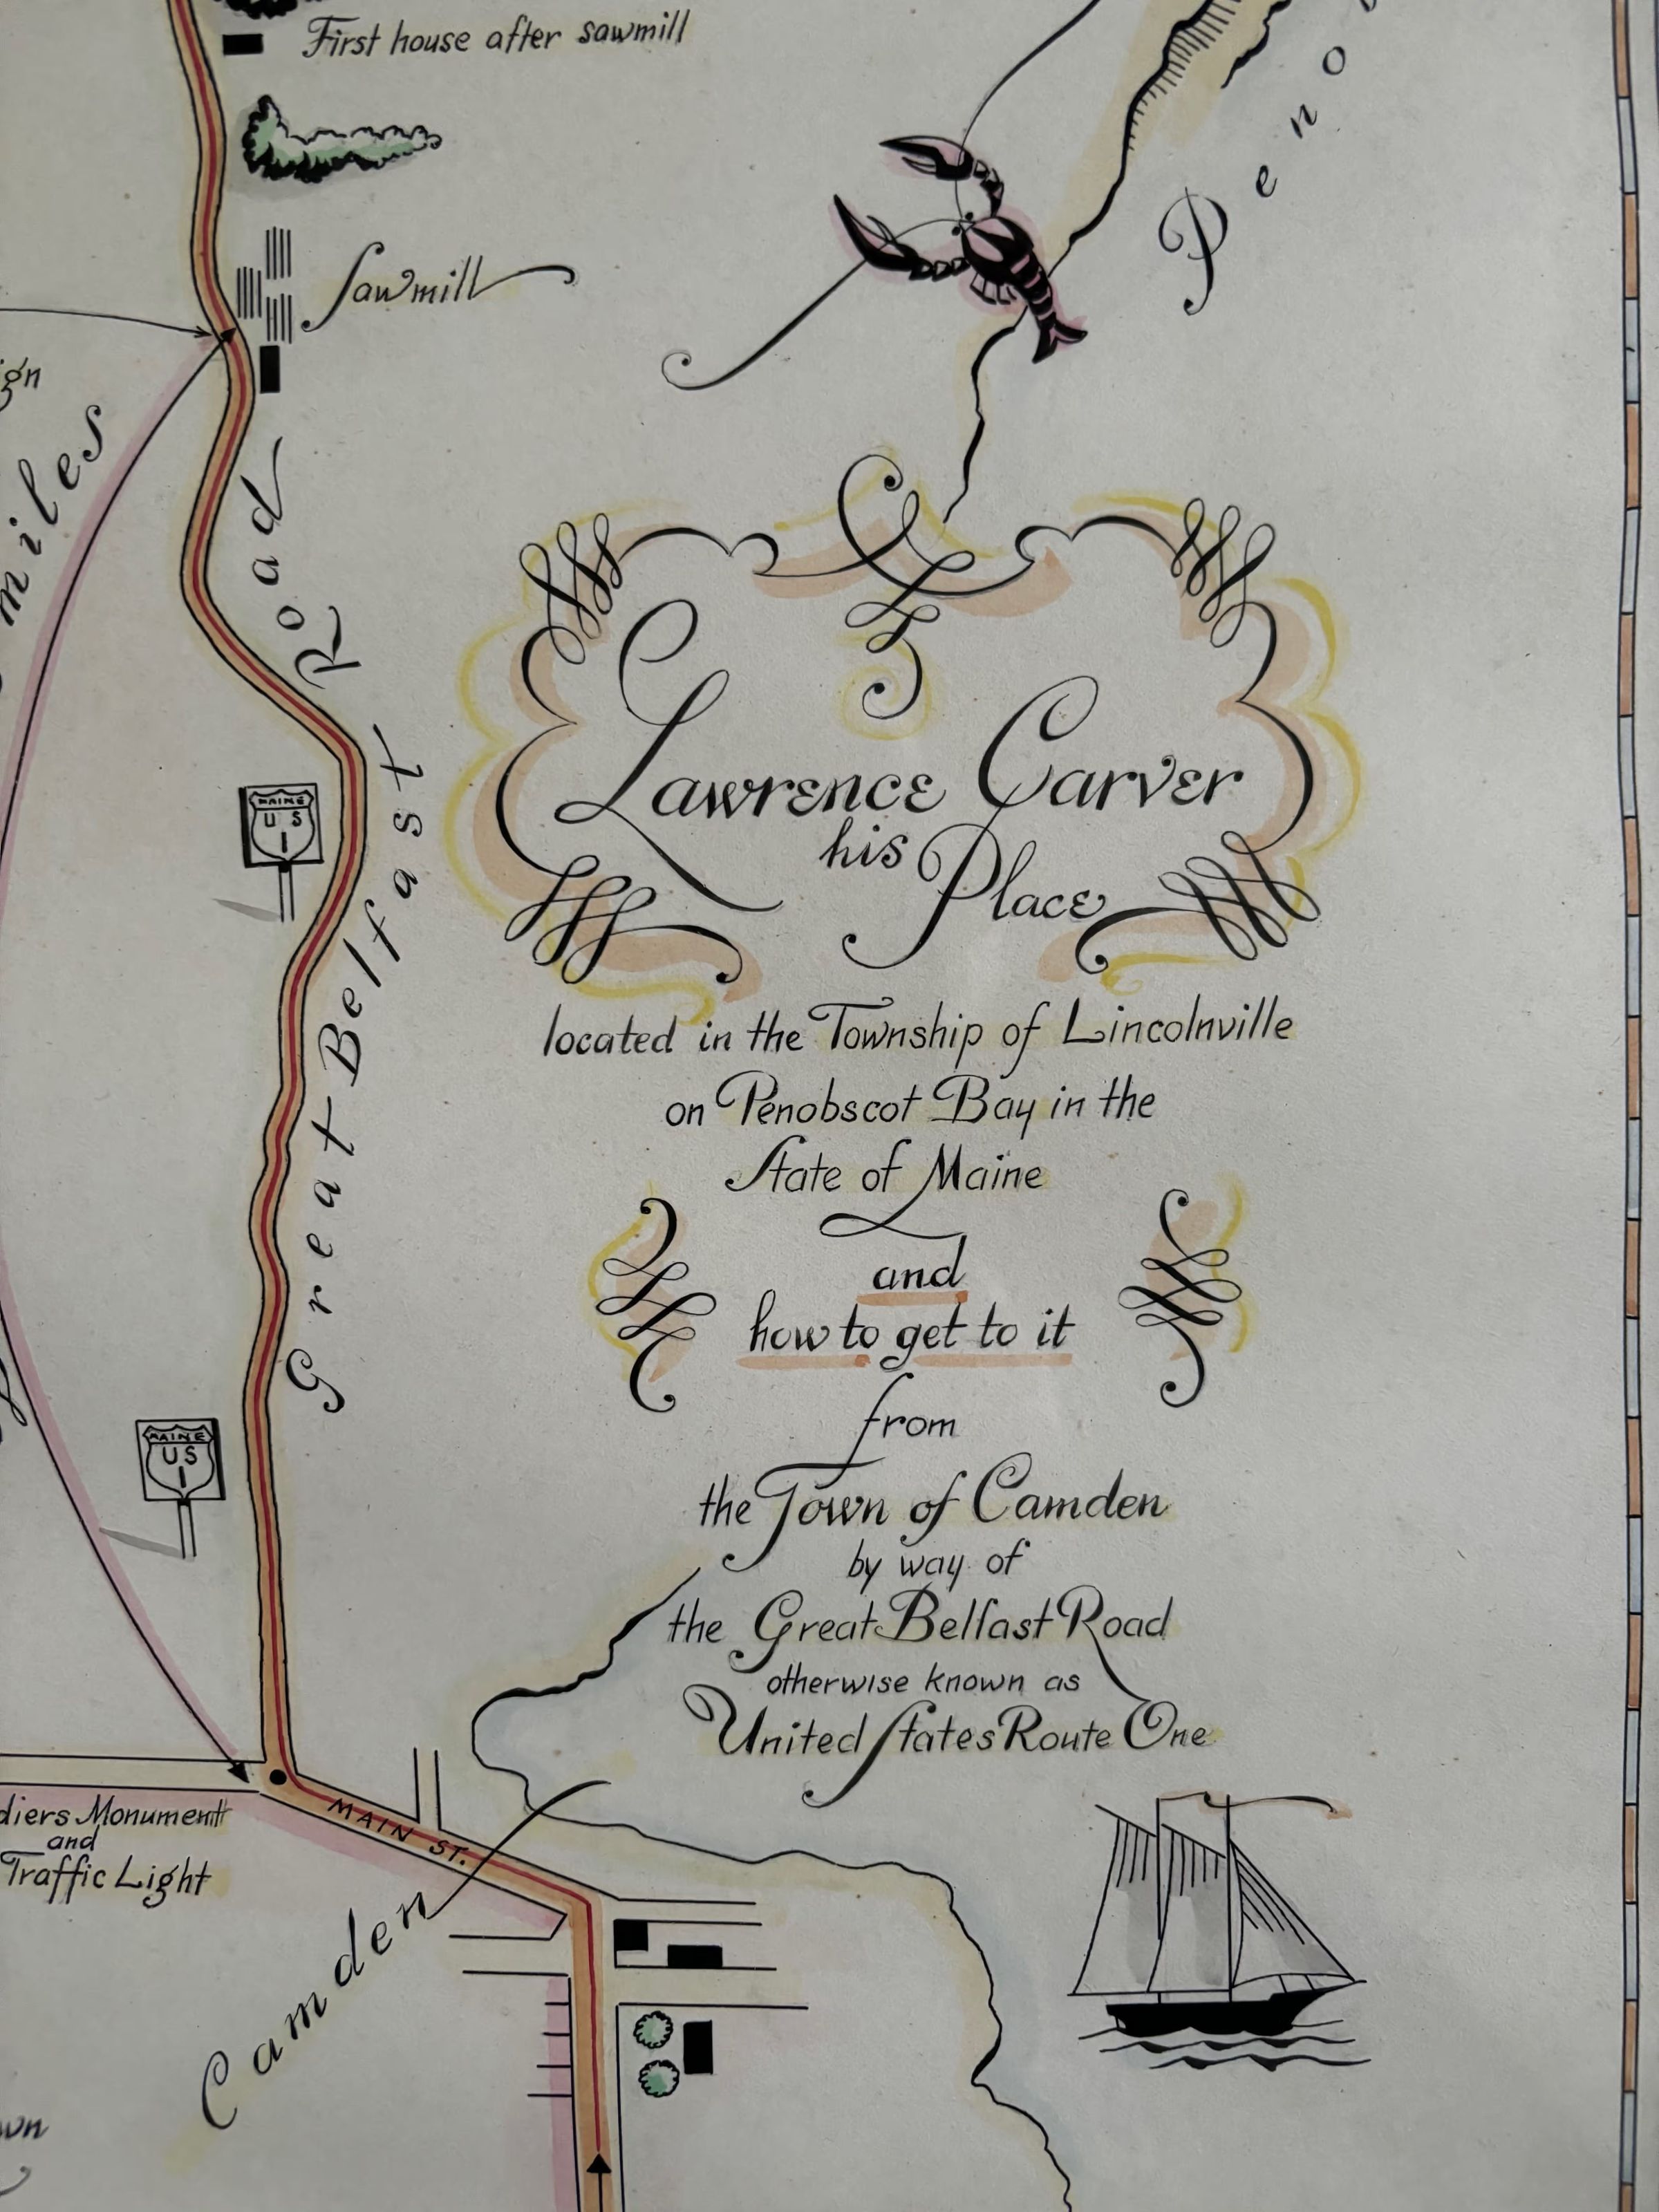 First house after sawmill
Penob
Sawmill
ign
miles
Great Belfast Road
Lawrence Carver
his
Place
MAINE
U S
1
located in the Township of Lincolnville
on Penobscot Bay in the
State of Maine
and
how to get to it
from
the Town of Camden
by way of
the Great Belfast Road
otherwise known as
United States Route One
MAINE
U S
1
diers Monument
and
Traffic Light
MAIN ST.
Camden
wn